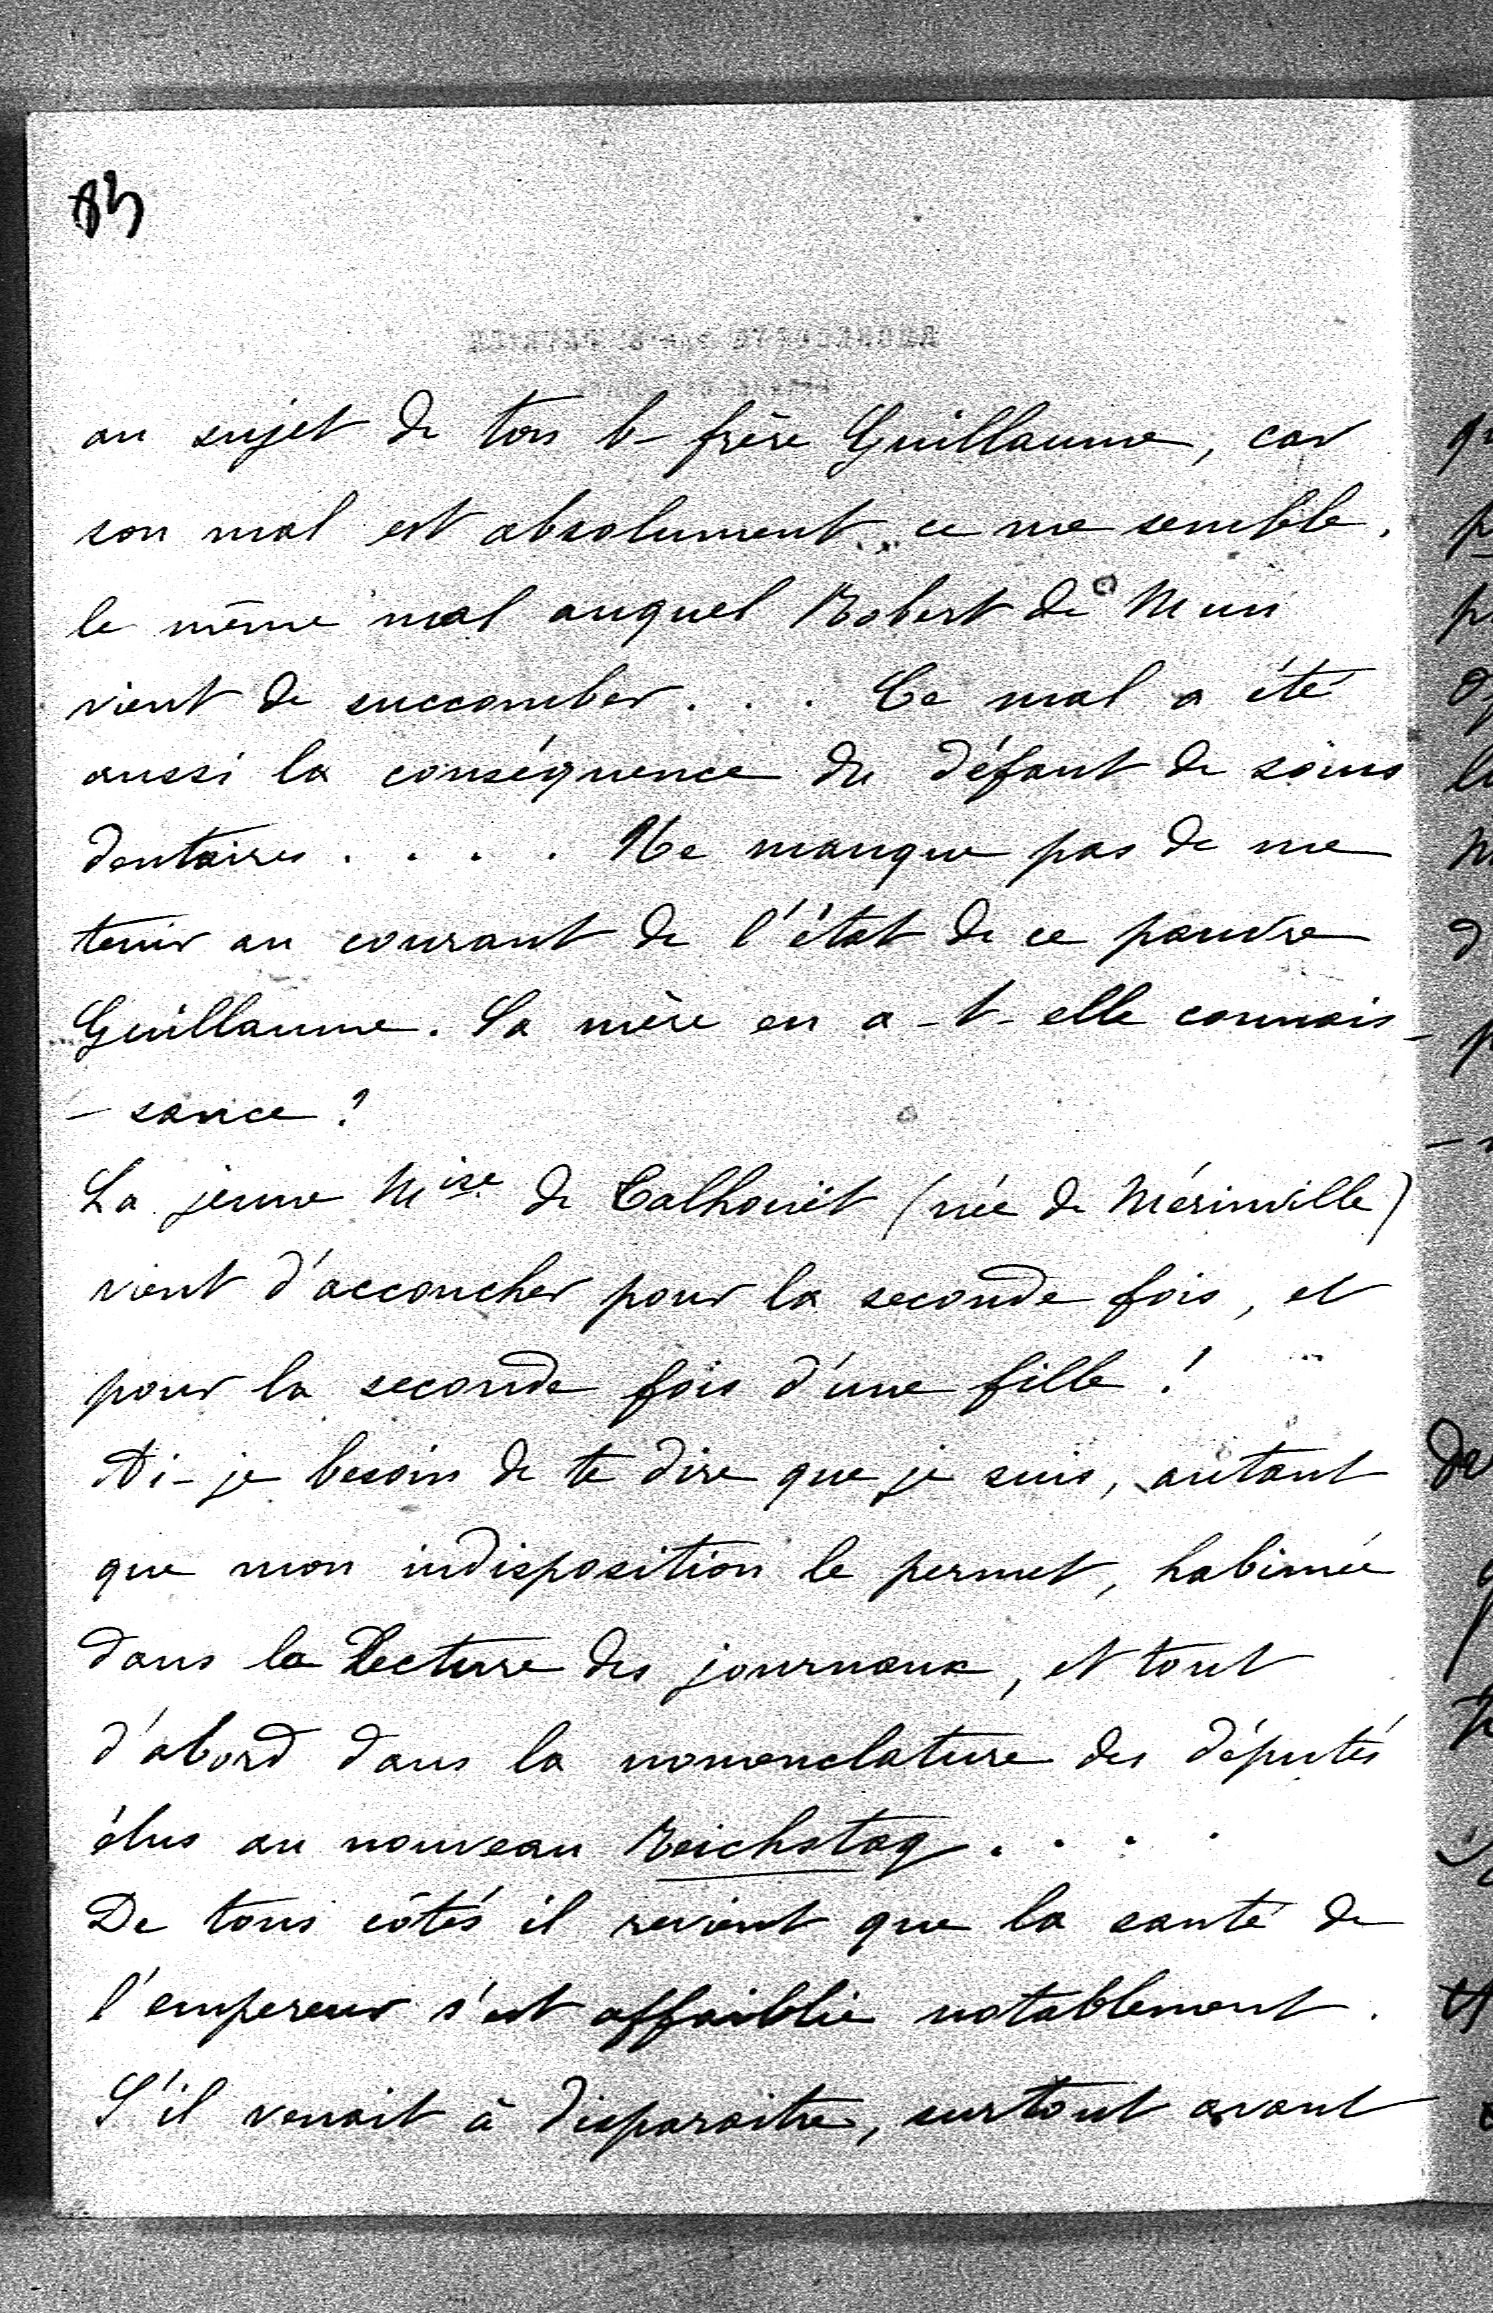 83
au sujet de ton b-frère Guillaume, car
son mal est absolument, ce me semble,
le même mal auquel Robert de Mun
vient de succomber... Ce mal a été
aussi la conséquence du défaut de soins
dentaires..... Ne manque pas de me
tenir au courant de l'état de ce pauvre
Guillaume. Sa mère en a-t-elle connais-
-sance?
La jeune Mise de Talhouët (née de Mérinville)
vient d'accoucher pour la seconde fois, et
pour la seconde fois d'une fille!
Ai-je besoin de te dire que je suis, autant
que mon indisposition le permet, habimée
dans la lecture des journaux, et tout
d'abord dans la nomenclature des députés
élus au nouveau Reichstag....
De tous côtés il revient que la santé de
l'empereur s'est affaiblie notablement.
S'il venait à disparaitre, surtout avant